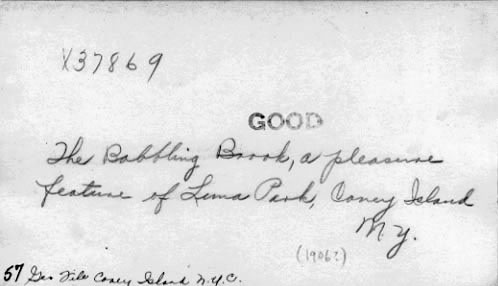 X37869
GOOD
The Babbling Brook, a pleasure
feature of Luna Park, Coney Island
N.Y.
(1906?)
57 Geo File Coney Island N.Y.C.